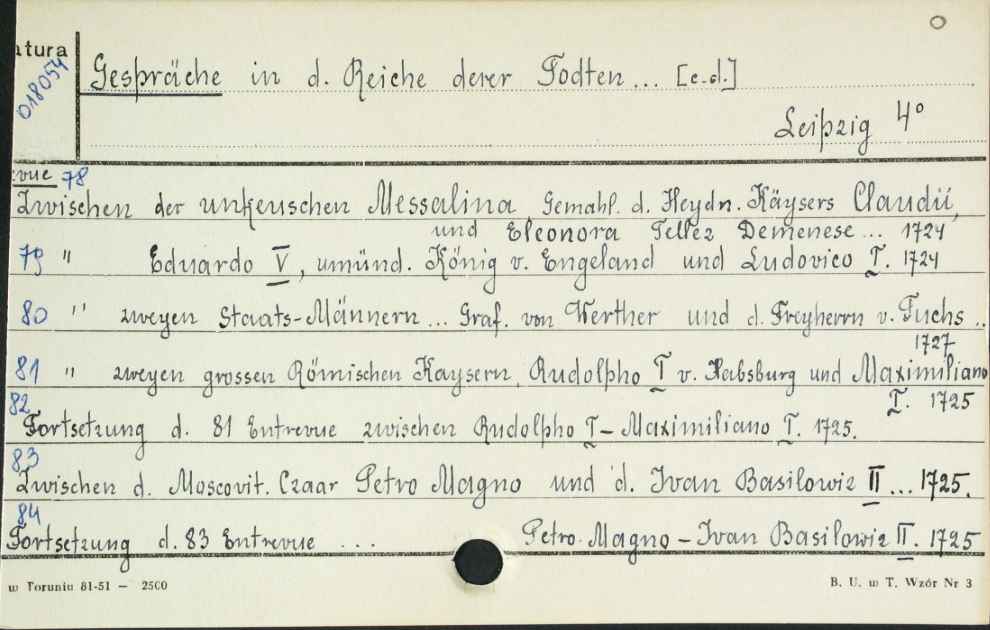 atura
018054
Gespräche in d. Reiche derer Todten ... [e.d.]
Leipzig 4°
evue 78
Zwischen der unkeuschen Messalina Gemahl. d. Heydn. Käysers Claudii,
und Eleonora Tellez Demenese ... 1724
79 " Eduardo V, umünd. König v. Engeland und Ludovico I. 1724
80 " zweyen Staats-Männern ... Graf. von Werther und d. Freyherrn v. Fuchs ..
1727
81 " zweyen grossen Römischen Kaysern, Rudolpho I v. Habsburg und Maximiliano
I. 1725
82
Fortsetzung d. 81 Entrevue zwischen Rudolpho I - Maximiliano I. 1725.
83
Zwischen d. Moscovit. Czaar Petro Magno und d. Ivan Basilowiz II ... 1725.
84
Fortsetzung d. 83 Entrevue ... Petro Magno - Ivan Basilowiz II. 1725
w Toruniu 81-51 — 2500
B. U. w T. Wzór Nr 3